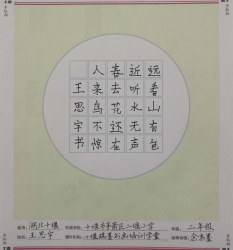 远看山有色
近听水无声
春去花还在
人来鸟不惊
王思宇书
湖北十堰 十堰市茅箭区二堰小学 二年级
王思宇